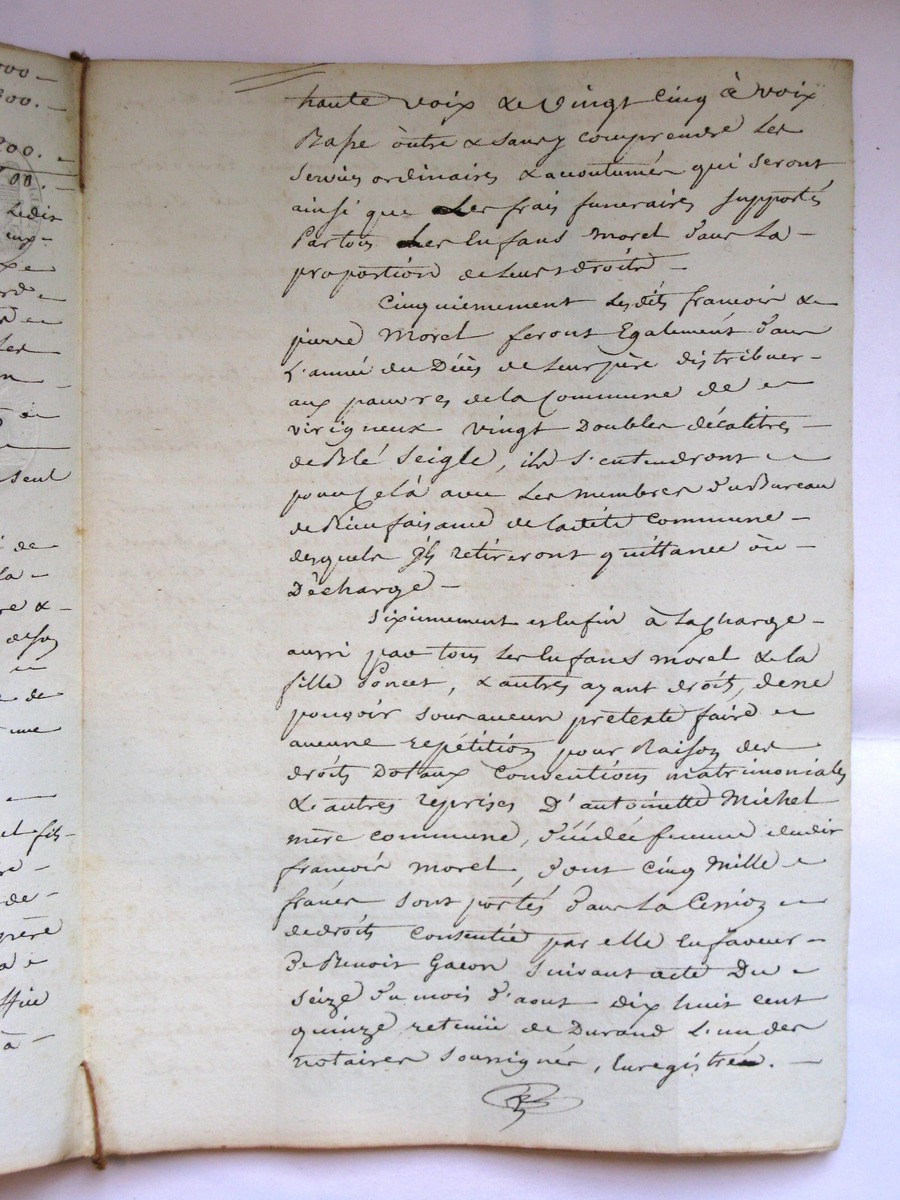 000 —
300. —
200. —
00. —
Ledit
haute voix & vingt cinq à voix
Basse outre & sans y comprendre les
services ordinaires & acoutumés qui seront
ainsi que les frais funeraires supportés
Par tous les Enfans Morel dans La —
proportion de Leurs droits —
Cinquiemement Lesdits francois &
pierre Morel feront Egalement dans
L'année du Décès de Leur père distribuer —
aux pauvres de la Commune de —
virigneux vingt Doubles décalitres —
de Blé Seigle, ils s'entendront —
pour Celà avec Les membres du Bureau
de Bienfaisance de ladite Commune —
desquels ils retireront quittance òu —
Décharge —
Sixiemement & Enfin à La Charge —
aussi par tous Les Enfans Morel & la
fille Poncet, & autres ayant droits, de ne
pouvoir sous aucun pretexte faire —
aucune repétition pour Raison des
droits Dotaux Conventions matrimoniales
& autres reprises D'antoinette Michel
mère commune, décédée femme dudit
francois Morel, dont Cinq Mille —
francs sont portés dans La Cession —
de droits Consentie par elle En faveur —
De Benoit Gacon suivant acte Du —
seize du mois d'aout dix huit cent
quinze retenüe de Durand L'un des
notaires soussignés, Enregistrée. —
seul
de
la —
re &
de son
de
une
fils —
de —
père
à —